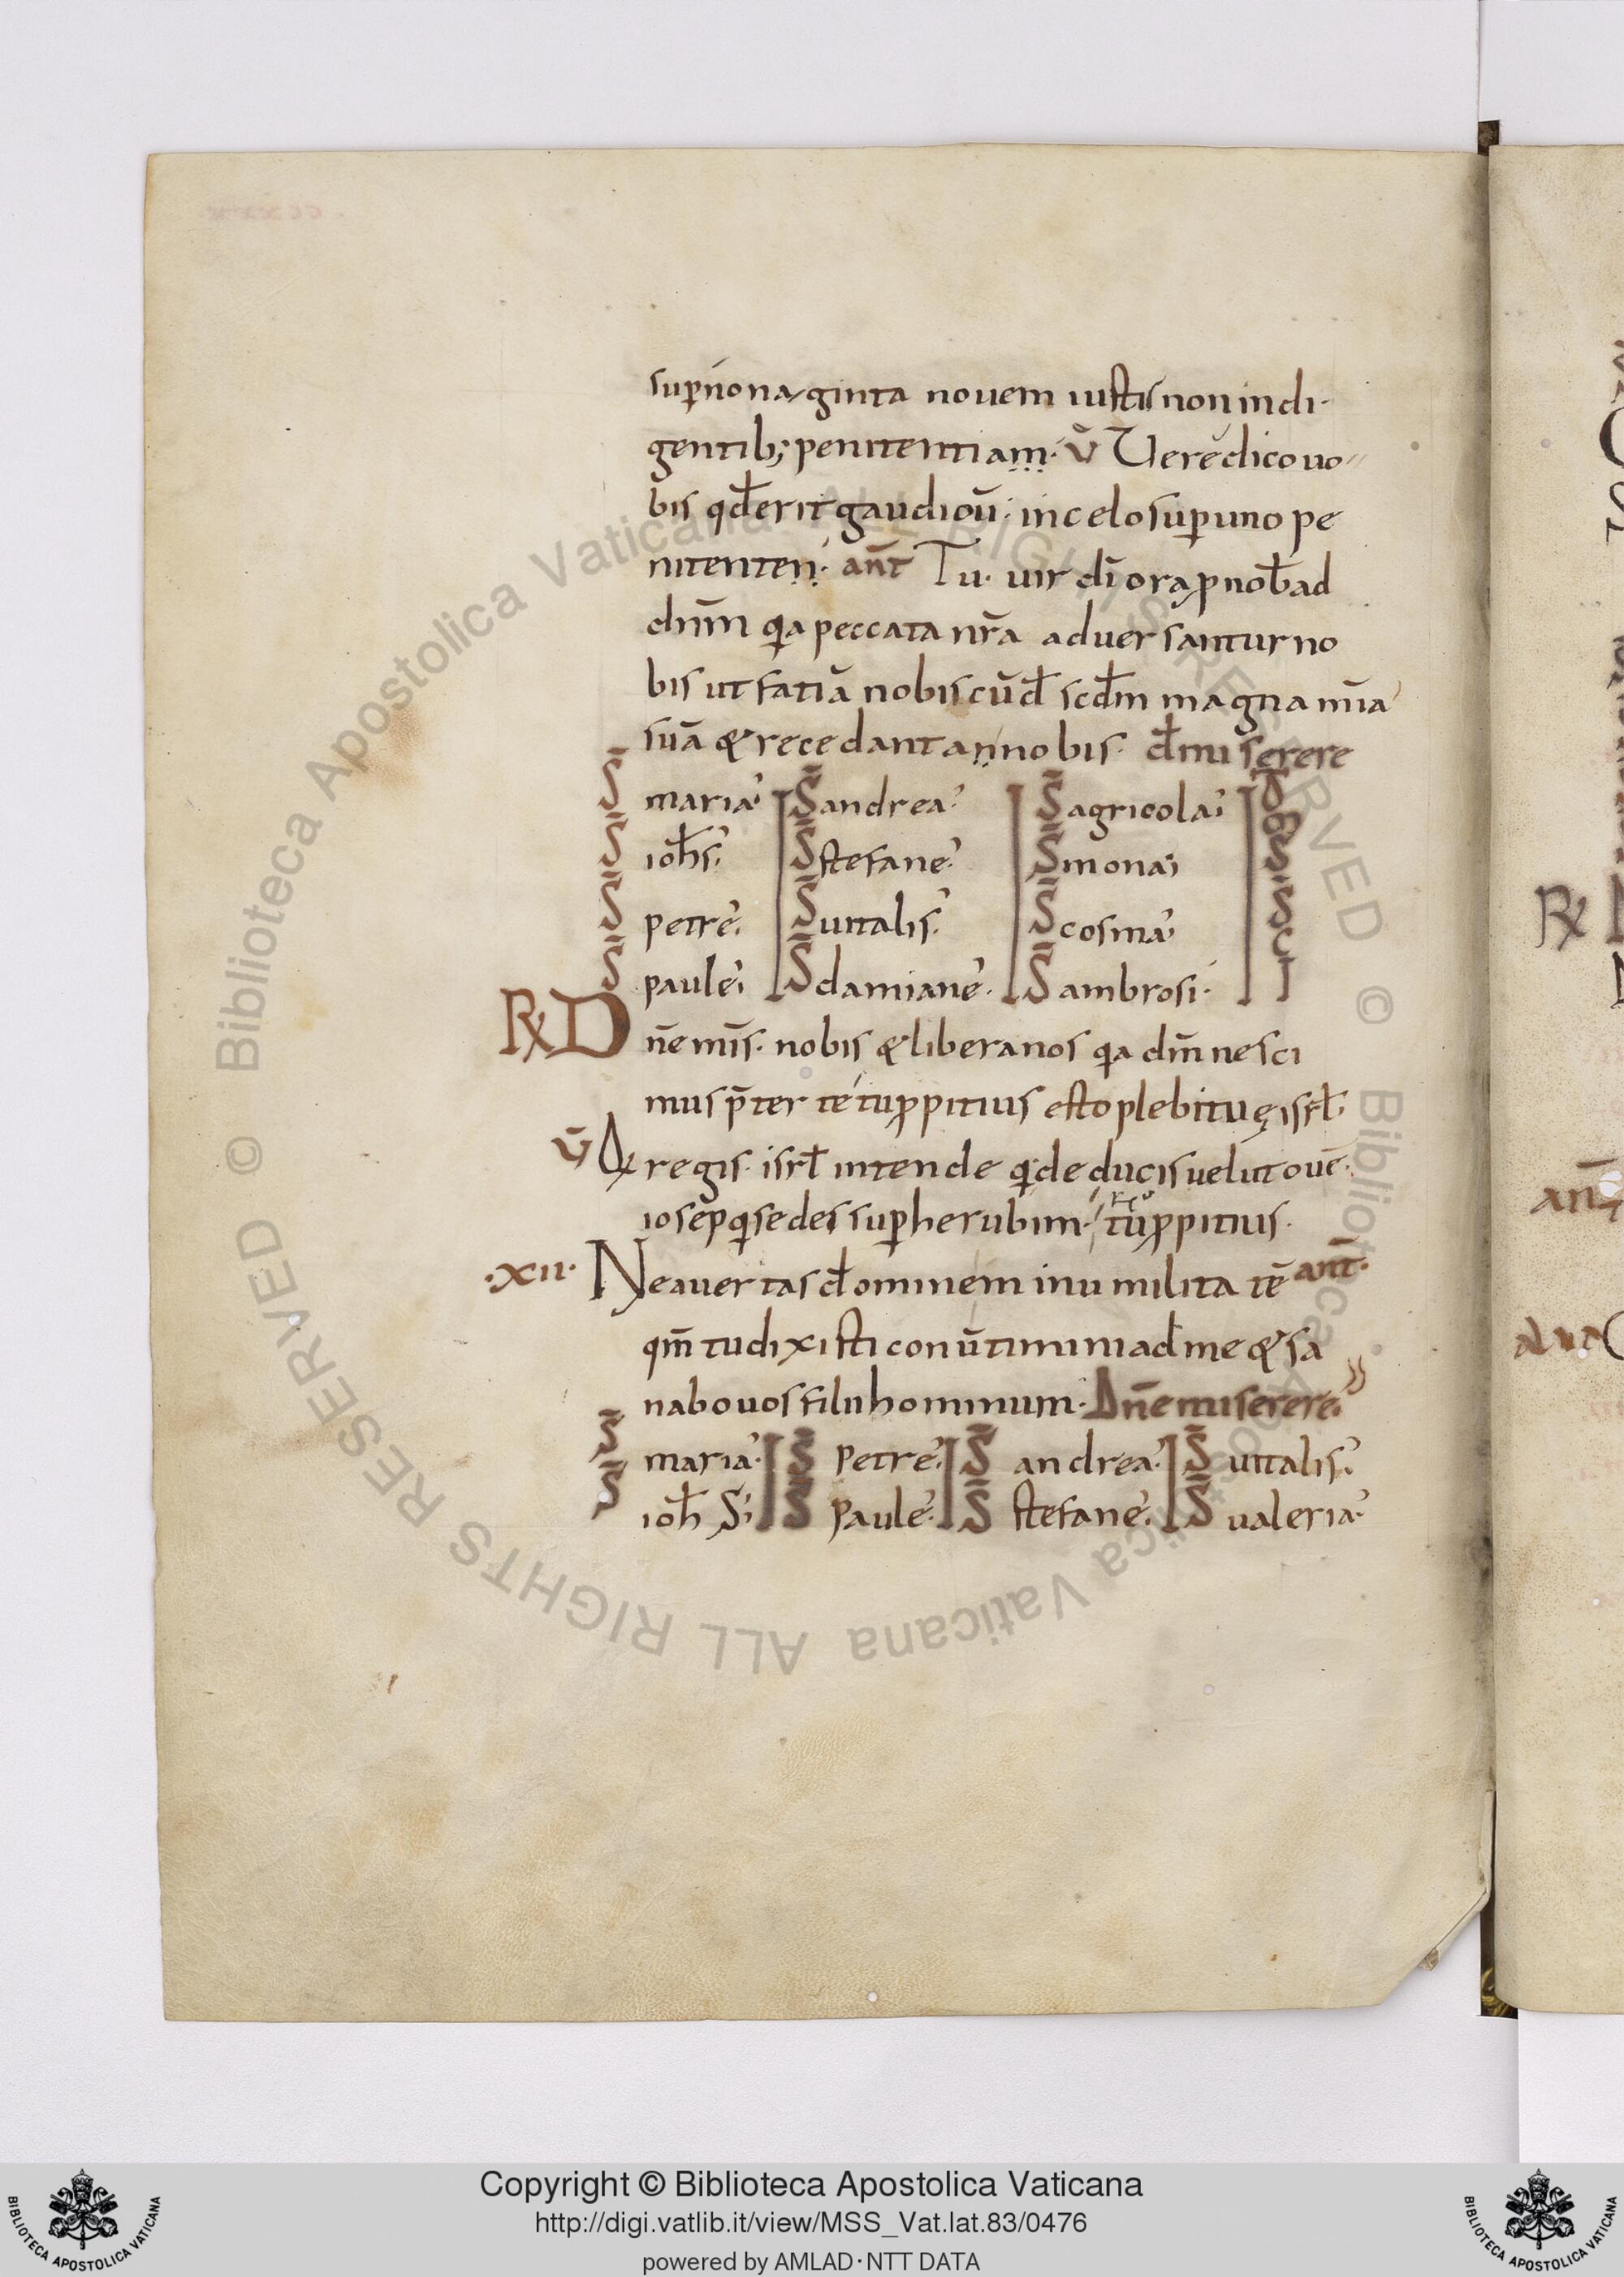 sup̄ nona ginta novem iustis non indi
gentib; penitentiam. v̄ Vere dico vo
bis qđ erit gaudioū in celo sup uno pe
nitenten. ant̄ Tu vir dī ora p nob̄ ad
dn̄m qa peccata nr̄a adversantur no
bis ut fatiā nobiscū đ scđm magna mīa
suā & recedant an nobis. đ miserere
S̄ maria S̄ andrea S̄ agricola
S̄ ioh̄s S̄ stefane S̄ mona
S̄ petre S̄ vitalis S̄ cosma
S̄ paule S̄ damiane S̄ ambrosi
R̷ Dn̄e mīs. nobis & libera nos qa dm̄ nesci
mus p̄ter te tu ppitius esto plebi tuę isrł
v̄ Qi regis isrł intende qi deducis velut ovē
iosep qi sedes sup herubim tu ppitius
·XII· Ne avertas đ ominem in umilitatē ant̄
qm̄ tu dixisti conv̄timini ad me & sa
nabo vos filii hominum. Dn̄e miserere
S̄ maria S̄ Petre S̄ andrea S̄ vitalis
S̄ ioh̄S S̄ Paule S̄ stefane S̄ valeria
R̷
ant̄
Copyright © Biblioteca Apostolica Vaticana
http://digi.vatlib.it/view/MSS_Vat.lat.83/0476
powered by AMLAD·NTT DATA
BIBLIOTECA APOSTOLICA VATICANA
BIBLIOTECA APOSTOLICA VATICANA
© Biblioteca Apostolica Vaticana ALL RIGHTS RESERVED © Biblioteca Apostolica Vaticana ALL RIGHTS RESERVED